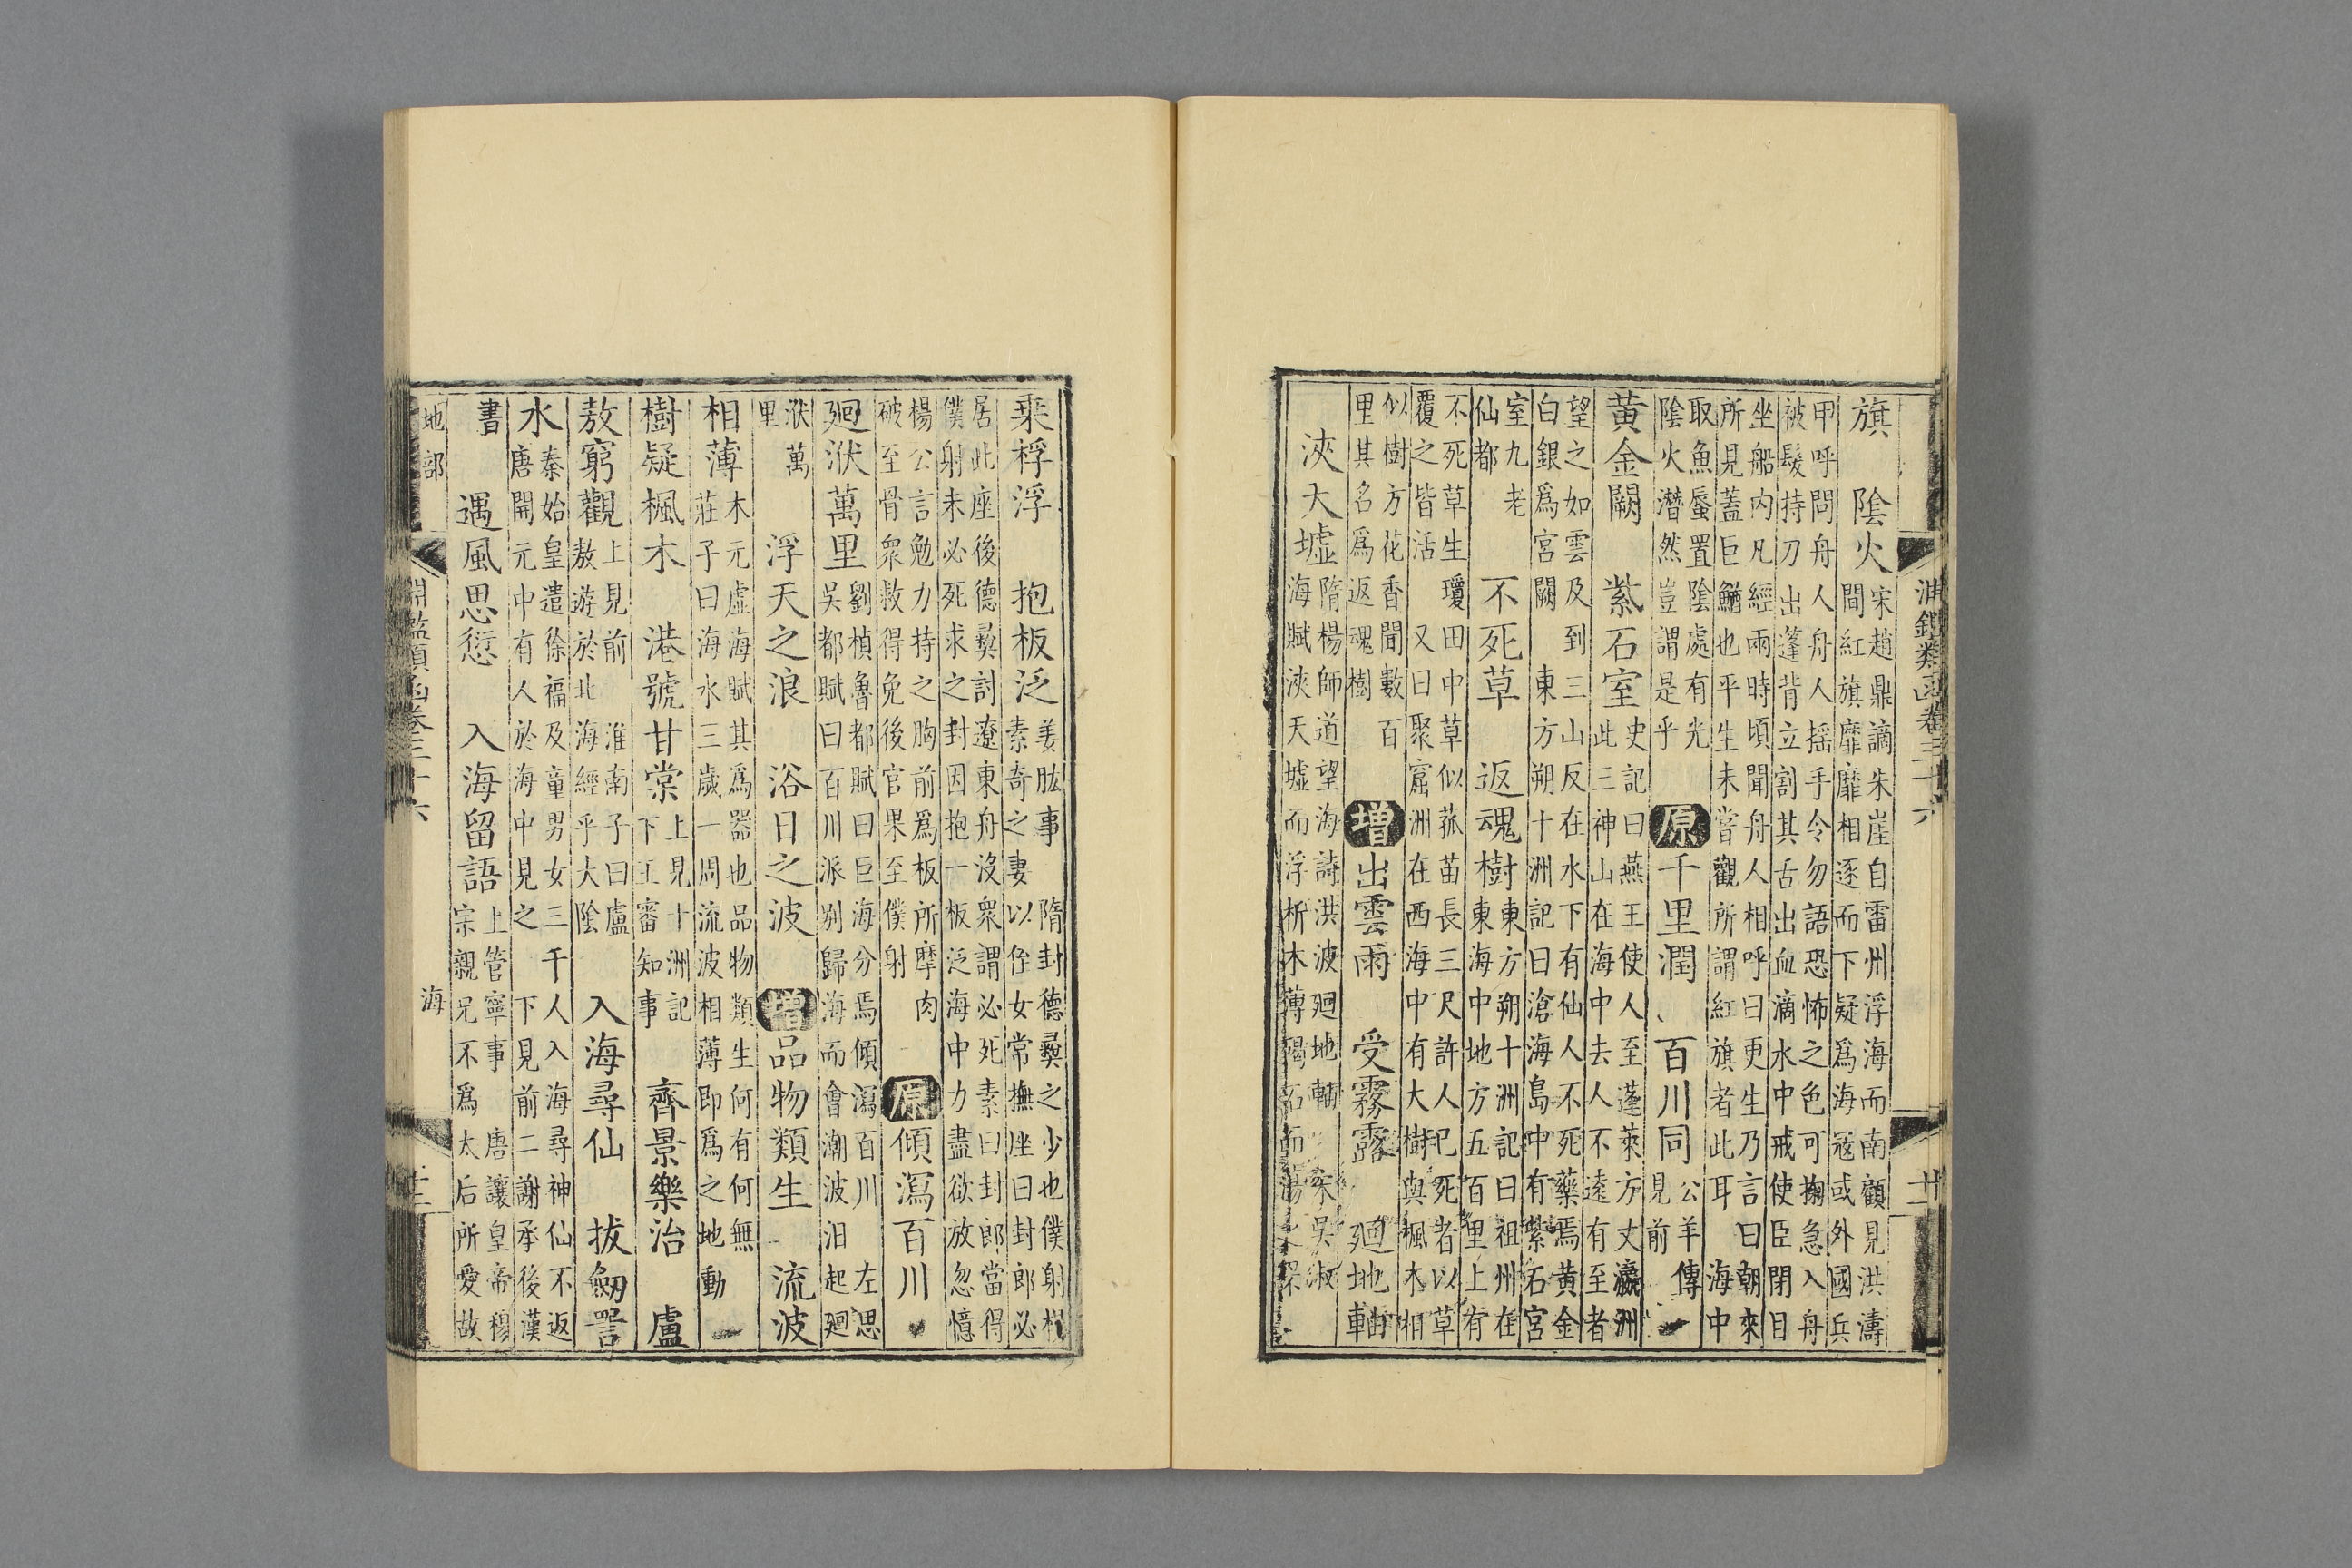 淵鑑類函卷三十六
廿一
旗　陰火
宋趙鼎謫朱崖自雷州浮海而南顧見洪濤
間紅旗靡靡相逐而下疑爲海寇或外國兵
甲呼問舟人舟人揺手令勿語恐怖之色可掬急入舟
被髮持刀出蓬背立割其舌出血滴水中戒使臣閉目
坐船內凡經雨時頃聞舟人相呼曰更生乃言曰朝來
所見蓋巨鰌也平生未嘗觀所謂紅旗者此耳　海中
取魚蜃置陰處有光
陰火潛然豈謂是乎
原千里潤　百川同
公羊傳
見前
黃金闕　紫石室
史記曰燕王使人至蓬萊方丈瀛洲
此三神山在海中去人不遠有至者
望之如雲及到三山反在水下有仙人不死藥焉黃金
白銀爲宮闕　東方朔十洲記曰滄海島中有紫石宮
室九老
仙都
不死草　返魂樹
東方朔十洲記曰祖州在
東海中地方五百里上有
不死草生瓊田中草似菰苗長三尺許人已死者以草
覆之皆活　又曰聚窟洲在西海中有大樹與楓木相
似樹方花香聞數百
里其名爲返魂樹
增出雲雨　受霧露　廻地軸
浹大墟
隋楊師道望海詩洪波廻地軸　宋吳淑
海賦浹天墟而浮析木薄碣石而蕩之罘
乘桴浮　抱板泛
姜肱事　隋封德彝之少也僕射楊
素奇之妻以侄女常撫座曰封郎必
居此座後德彝討遼東舟沒衆謂必死素曰封郎當得
僕射未必死求之封因抱一板泛海中力盡欲放忽憶
楊公言勉力持之胸前爲板所摩肉
破至骨衆救得免後官果至僕射
原傾瀉百川
廻洑萬里
劉楨魯都賦曰巨海分焉傾瀉百川　左思
吳都賦曰百川派别歸海而會潮波汨起廻
洑萬
里
浮天之浪　浴日之波　增品物類生　流波
相薄
木元虛海賦其爲器也品物類生何有何無
莊子曰海水三歲一周流波相薄卽爲之地動
樹疑楓木　港號甘棠
上見十洲記
下王審知事
齊景樂治　盧
敖窮觀
上見前　淮南子曰盧
敖遊於北海經乎大陰
入海尋仙　拔劒詈
水
秦始皇遣徐福及童男女三千人入海尋神仙不返
唐開元中有人於海中見之　下見前二謝承後漢
書
遇風思愆　入海留語
上管寧事　唐讓皇帝穆
宗親兄不爲太后所愛故
地部
海
淵鑑類函卷三十六